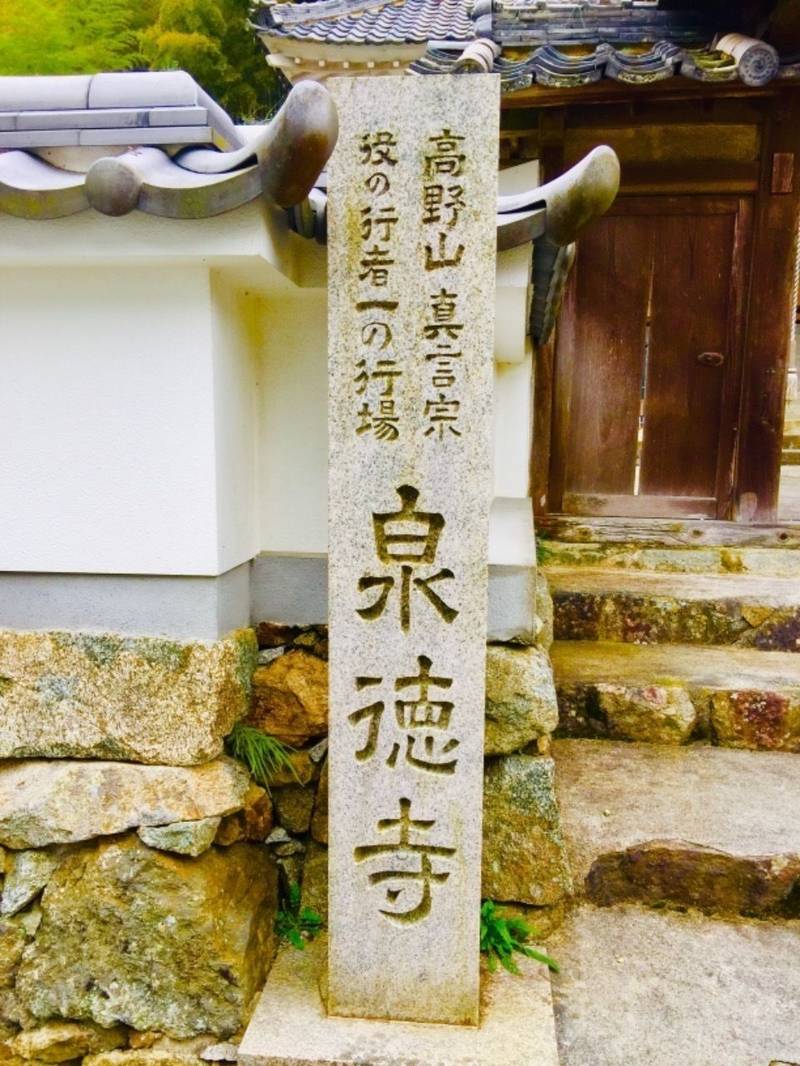 高野山真言宗
役の行者一の行場
泉徳寺